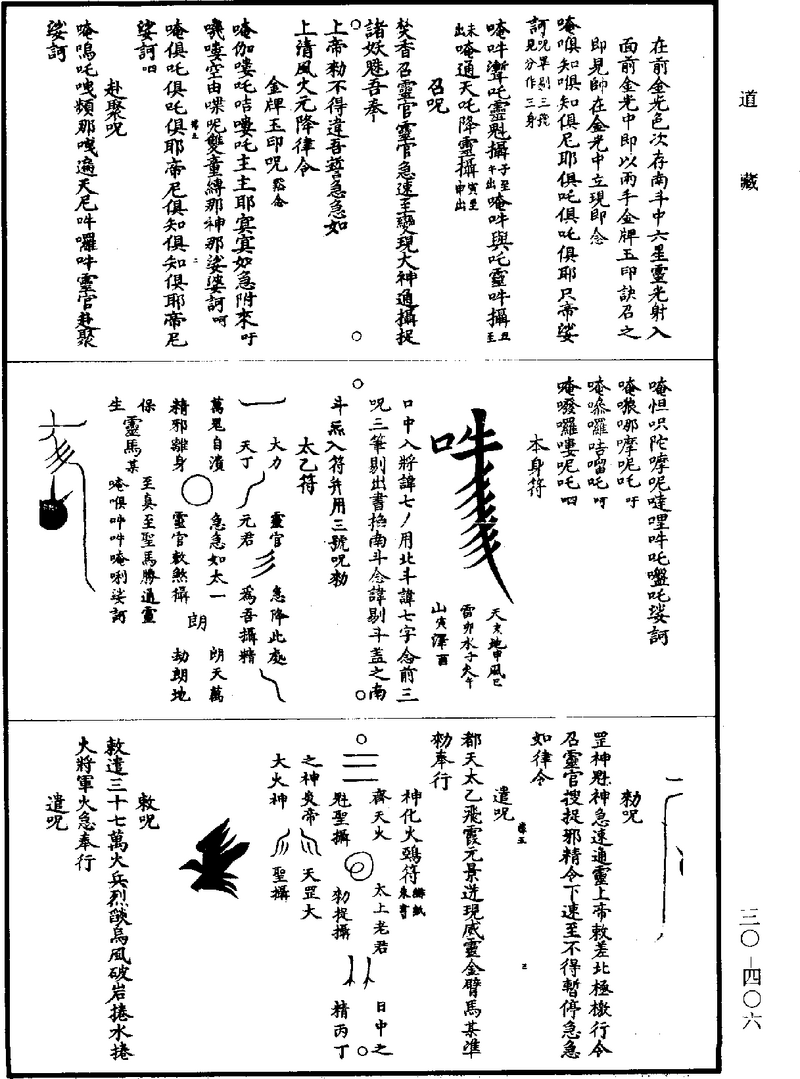 道藏
在前金光色次存南斗中六星靈光射入
面前金光中即以兩手金牌玉印訣召之
即見師在金光中立現即念
唵俱知俱知俱尼耶俱吒俱吒俱耶尺帝娑
訶呪畢剔三號見分作三身
唵吽灣吒靈魁攝子至午出唵吽與吒靈吽攝丑至
未出唵通天吒降靈攝寅至申出
召呪
焚香召靈官靈官急速至變現大神通攝捉
諸妖魁吾奉
上帝勑不得違吾誓急急如
上清風火元降律令
金牌玉印呪默念
唵伽嘍吒咭嘍吒主主耶㝠㝠如急附來吁
嘍空由喋呪雙童縛那神那娑婆訶呵
唵俱吒俱吒俱耶帝尼俱知俱知俱耶帝尼
娑訶呬
赴聚呪
唵嗚吒㗚頰那㗚遍天尼吽囉吽靈官赴聚
娑訶
唵怛呮陀摩呢噠哩吽吒𠺁吒娑訶
唵㗟哪摩呢吒吁
唵㗛囉咭嚁吒呵
唵發囉嘍呢吒呬
本身符
天亥地申風巳
雷卯水子火午
山寅澤酉
口中入將諱七丿用北斗諱七字念前三
呪三筆剔出書㧾南斗念諱剔斗蓋之南
斗炁入符并用三號呪勑
太乙符
大力 靈官 急降此處
天丁 元君 為吾攝精
萬鬼自潰 急急如太一 朗天萬
精邪離身 靈官敕煞攝 朗 劫朗地
保 至真至聖馬勝通靈
靈馬某
生 唵俱吽吽唵唎娑訶
勑呪
罡神魁神急速通靈上帝敕差北極檄行令
召靈官搜捉邪精令下速至不得暫停急急
如律令
遣呪
都天太乙飛霞元景迸現威靈金臂馬某準
勑奉行
神化火鵶符緋紙朱書
齊天火 太上老君 日中之
魁聖攝 勑捉攝 精丙丁
之神炎帝 天罡大
大火神 聖攝
敕呪
敕遣三十七萬火兵烈燄烏風破岩捲水捲
火將軍火急奉行
遣呪
三〇-四〇六